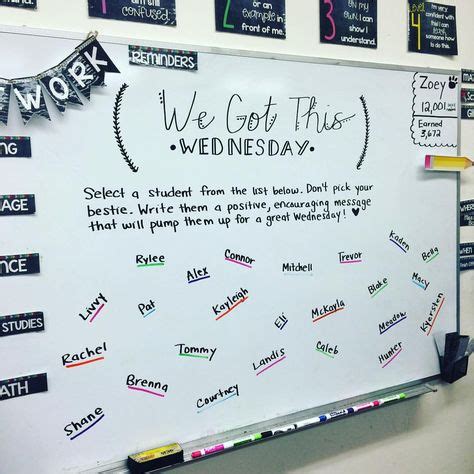 I'm still
confused.
2
or an example in
front of me.
3
my own. I can
show I
understand.
LEVEL 4
very confident
with this!
I can teach
someone else
about it.
work
REMINDERS
We Got This
• WEDNESDAY •
Zoey
12,001
Earned
3,672
Select a student from the list below. Don't pick your
bestie. Write them a positive, encouraging message
that will pump them up for a great Wednesday!
Rylee
Connor
Trevor
Kaden
Bella
Alex
Mitchell
Livvy
Pat
Kayleigh
Blake
Macy
Eli
McKayla
Meadow
Kyersten
Rachel
Tommy
Landis
Caleb
Hunter
Brenna
Courtney
Shane
NG
AGE
NCE
STUDIES
MATH